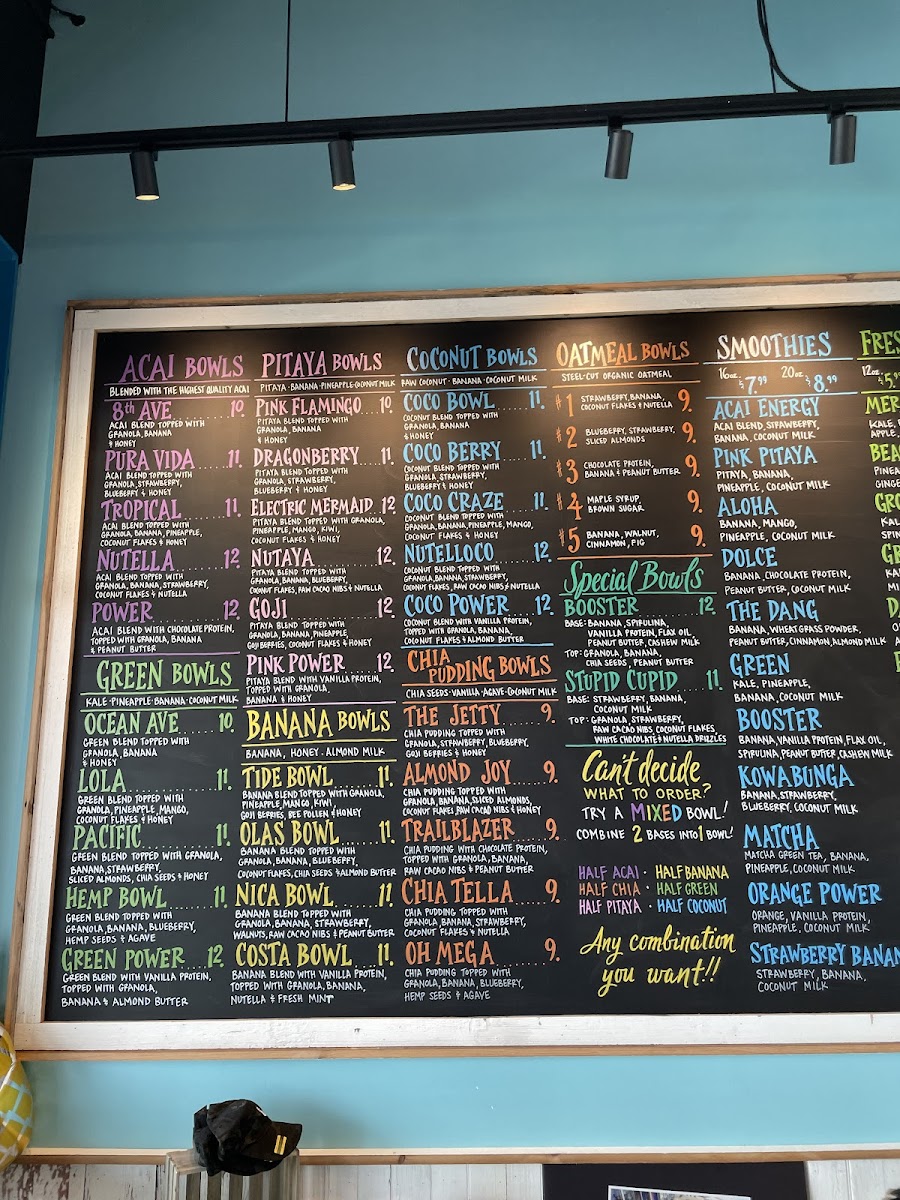 ACAI BOWLS
BLENDED WITH THE HIGHEST QUALITY ACAI
8th AVE 10.
ACAI BLEND TOPPED WITH
GRANOLA, BANANA
& HONEY
PURA VIDA 11.
ACAI BLEND TOPPED WITH
GRANOLA, STRAWBERRY,
BLUEBERRY & HONEY
TROPICAL 11.
ACAI BLEND TOPPED WITH
GRANOLA, BANANA, PINEAPPLE,
COCONUT FLAKES & HONEY
NUTELLA 12.
ACAI BLEND TOPPED WITH
GRANOLA, BANANA, STRAWBERRY,
COCONUT FLAKES & NUTELLA
POWER 12.
ACAI BLEND WITH CHOCOLATE PROTEIN,
TOPPED WITH GRANOLA, BANANA
& PEANUT BUTTER
GREEN BOWLS
KALE · PINEAPPLE · BANANA · COCONUT MILK
OCEAN AVE 10.
GREEN BLEND TOPPED WITH
GRANOLA, BANANA
& HONEY
LOLA 11.
GREEN BLEND TOPPED WITH
GRANOLA, PINEAPPLE, MANGO,
COCONUT FLAKES & HONEY
PACIFIC 11.
GREEN BLEND TOPPED WITH GRANOLA,
BANANA, STRAWBERRY,
SLICED ALMONDS, CHIA SEEDS & HONEY
HEMP BOWL 11.
GREEN BLEND TOPPED WITH
GRANOLA, BANANA, BLUEBERRY,
HEMP SEEDS & AGAVE
GREEN POWER 12.
GREEN BLEND WITH VANILLA PROTEIN,
TOPPED WITH GRANOLA,
BANANA & ALMOND BUTTER
PITAYA BOWLS
PITAYA · BANANA · PINEAPPLE · COCONUT MILK
PINK FLAMINGO 10.
PITAYA BLEND TOPPED WITH
GRANOLA, BANANA
& HONEY
DRAGONBERRY 11.
PITAYA BLEND TOPPED WITH
GRANOLA, STRAWBERRY,
BLUEBERRY & HONEY
ELECTRIC MERMAID 12
PITAYA BLEND TOPPED WITH GRANOLA,
PINEAPPLE, MANGO, KIWI,
COCONUT FLAKES & HONEY
NUTAYA 12.
PITAYA BLEND TOPPED WITH
GRANOLA, BANANA, BLUEBERRY,
COCONUT FLAKES, RAW CACAO NIBS & NUTELLA
GOJI 12.
PITAYA BLEND TOPPED WITH
GRANOLA, BANANA, PINEAPPLE,
GOJI BERRIES, COCONUT FLAKES & HONEY
PINK POWER 12.
PITAYA BLEND WITH VANILLA PROTEIN,
TOPPED WITH GRANOLA,
BANANA & HONEY
BANANA BOWLS
BANANA, HONEY · ALMOND MILK
TIDE BOWL 11.
BANANA BLEND TOPPED WITH GRANOLA,
PINEAPPLE, MANGO, KIWI,
GOJI BERRIES, BEE POLLEN & HONEY
OLAS BOWL 11.
BANANA BLEND TOPPED WITH
GRANOLA, BANANA, BLUEBERRY,
COCONUT FLAKES, CHIA SEEDS & ALMOND BUTTER
NICA BOWL 11.
BANANA BLEND TOPPED WITH
GRANOLA, BANANA, STRAWBERRY,
WALNUTS, RAW CACAO NIBS & PEANUT BUTTER
COSTA BOWL 11.
BANANA BLEND WITH VANILLA PROTEIN,
TOPPED WITH GRANOLA, BANANA,
NUTELLA & FRESH MINT
COCONUT BOWLS
RAW COCONUT · BANANA · COCONUT MILK
COCO BOWL 11.
COCONUT BLEND TOPPED WITH
GRANOLA, BANANA
& HONEY
COCO BERRY 11.
COCONUT BLEND TOPPED WITH
GRANOLA, STRAWBERRY,
BLUEBERRY & HONEY
COCO CRAZE 11.
COCONUT BLEND TOPPED WITH
GRANOLA, BANANA, PINEAPPLE, MANGO,
COCONUT FLAKES & HONEY
NUTELLOCO 12.
COCONUT BLEND TOPPED WITH
GRANOLA, BANANA, STRAWBERRY,
COCONUT FLAKES, RAW CACAO NIBS & NUTELLA
COCO POWER 12.
COCONUT BLEND WITH VANILLA PROTEIN,
TOPPED WITH GRANOLA, BANANA,
COCONUT FLAKES & ALMOND BUTTER
CHIA
PUDDING BOWLS
CHIA SEEDS · VANILLA · AGAVE · COCONUT MILK
THE JETTY 9.
CHIA PUDDING TOPPED WITH
GRANOLA, STRAWBERRY, BLUEBERRY,
GOJI BERRIES & HONEY
ALMOND JOY 9.
CHIA PUDDING TOPPED WITH
GRANOLA, BANANA, SLICED ALMONDS,
COCONUT FLAKES, RAW CACAO NIBS & HONEY
TRAILBLAZER 9.
CHIA PUDDING WITH CHOCOLATE PROTEIN,
TOPPED WITH GRANOLA, BANANA,
RAW CACAO NIBS & PEANUT BUTTER
CHIA TELLA 9.
CHIA PUDDING TOPPED WITH
GRANOLA, BANANA, STRAWBERRY,
COCONUT FLAKES & NUTELLA
OH MEGA 9.
CHIA PUDDING TOPPED WITH
GRANOLA, BANANA, BLUEBERRY,
HEMP SEEDS & AGAVE
OATMEAL BOWLS
STEEL-CUT ORGANIC OATMEAL
#1 STRAWBERRY, BANANA, 9.
COCONUT FLAKES & NUTELLA
#2 BLUEBERRY, STRAWBERRY, 9.
SLICED ALMONDS
#3 CHOCOLATE PROTEIN, 9.
BANANA & PEANUT BUTTER
#4 MAPLE SYRUP, 9.
BROWN SUGAR
#5 BANANA, WALNUT, 9.
CINNAMON, FIG
Special Bowls
BOOSTER 12.
BASE: BANANA, SPIRULINA,
VANILLA PROTEIN, FLAX OIL,
PEANUT BUTTER, CASHEW MILK
TOP: GRANOLA, BANANA,
CHIA SEEDS, PEANUT BUTTER
STUPID CUPID 11.
BASE: STRAWBERRY, BANANA,
COCONUT MILK
TOP: GRANOLA, STRAWBERRY,
RAW CACAO NIBS, COCONUT FLAKES,
WHITE CHOCOLATE & NUTELLA DRIZZLES
Can't decide
WHAT TO ORDER?
TRY A MIXED BOWL!
COMBINE 2 BASES INTO 1 BOWL!
HALF ACAI · HALF BANANA
HALF CHIA · HALF GREEN
HALF PITAYA · HALF COCONUT
Any combination
you want!!
SMOOTHIES
16oz. $7.99 20oz. $8.99
ACAI ENERGY
ACAI BLEND, STRAWBERRY,
BANANA, COCONUT MILK
PINK PITAYA
PITAYA, BANANA,
PINEAPPLE, COCONUT MILK
ALOHA
BANANA, MANGO,
PINEAPPLE, COCONUT MILK
DOLCE
BANANA, CHOCOLATE PROTEIN,
PEANUT BUTTER, COCONUT MILK
THE DANG
BANANA, WHEATGRASS POWDER,
PEANUT BUTTER, CINNAMON, ALMOND MILK
GREEN
KALE, PINEAPPLE,
BANANA, COCONUT MILK
BOOSTER
BANANA, VANILLA PROTEIN, FLAX OIL,
SPIRULINA, PEANUT BUTTER, CASHEW MILK
KOWABUNGA
BANANA, STRAWBERRY,
BLUEBERRY, COCONUT MILK
MATCHA
MATCHA GREEN TEA, BANANA,
PINEAPPLE, COCONUT MILK
ORANGE POWER
ORANGE, VANILLA PROTEIN,
PINEAPPLE, COCONUT MILK
STRAWBERRY BANAN
STRAWBERRY, BANANA,
COCONUT MILK
FRES
12oz.
$5.9
MER
KALE,
APPLE,
BEA
PINEA
GINGE
GRO
KAL
SPIN
GR
KA
MI